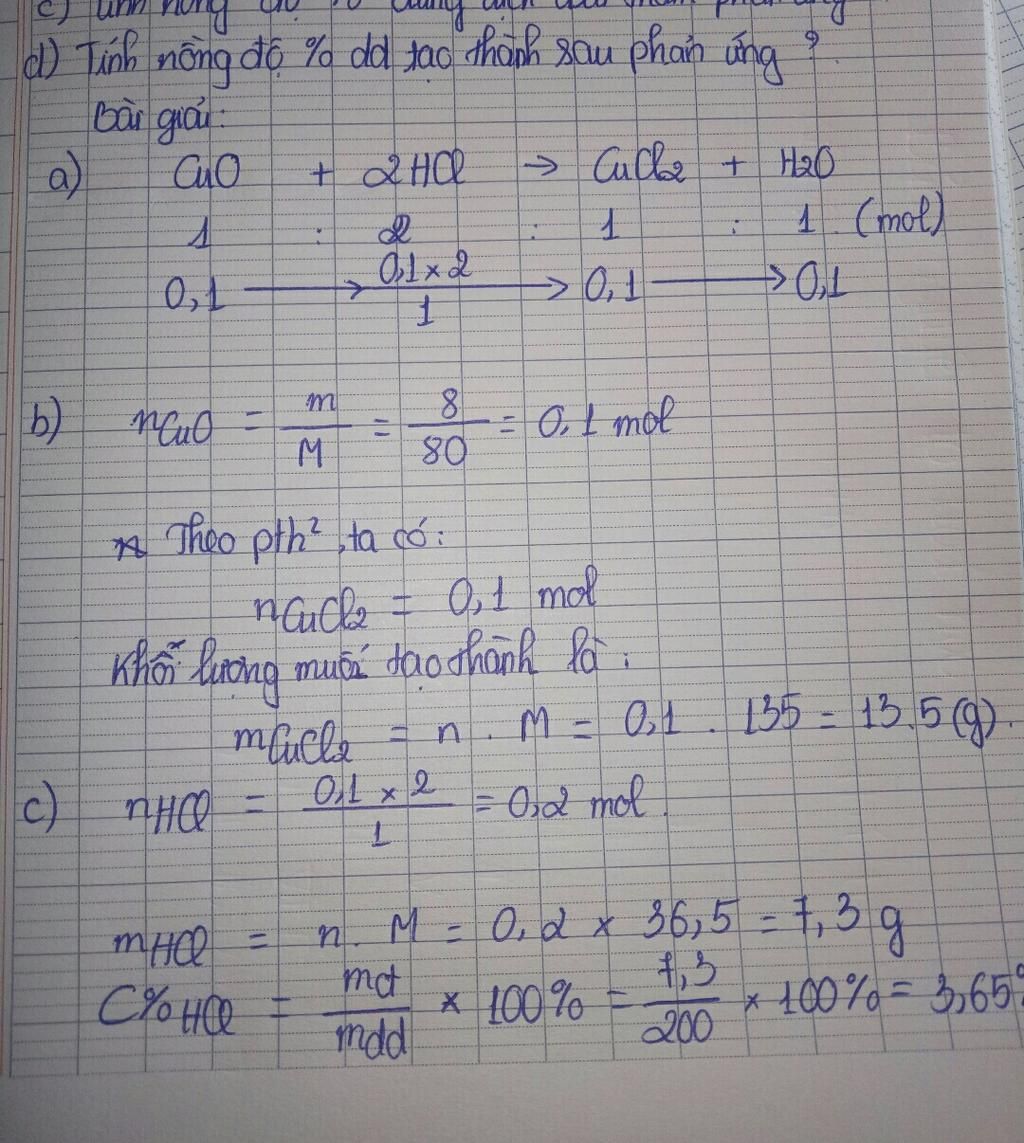 d) Tính nồng độ % dd tạo thành sau phản ứng?
Bài giải:
a) CuO + 2HCl → CuCl2 + H2O
1 : 2 : 1 : 1 (mol)
0,1 → 0,1 × 2 / 1 → 0,1 → 0,1
b) nCuO = m/M = 8/80 = 0,1 mol
Theo pth², ta có:
nCuCl2 = 0,1 mol
Khối lượng muối tạo thành là:
mCuCl2 = n . M = 0,1 . 135 = 13,5 (g).
c) nHCl = 0,1 × 2 / 1 = 0,2 mol.
mHCl = n . M = 0,2 × 36,5 = 7,3 g
C% HCl = mct/mdd × 100% = 7,3/200 × 100% = 3,65%